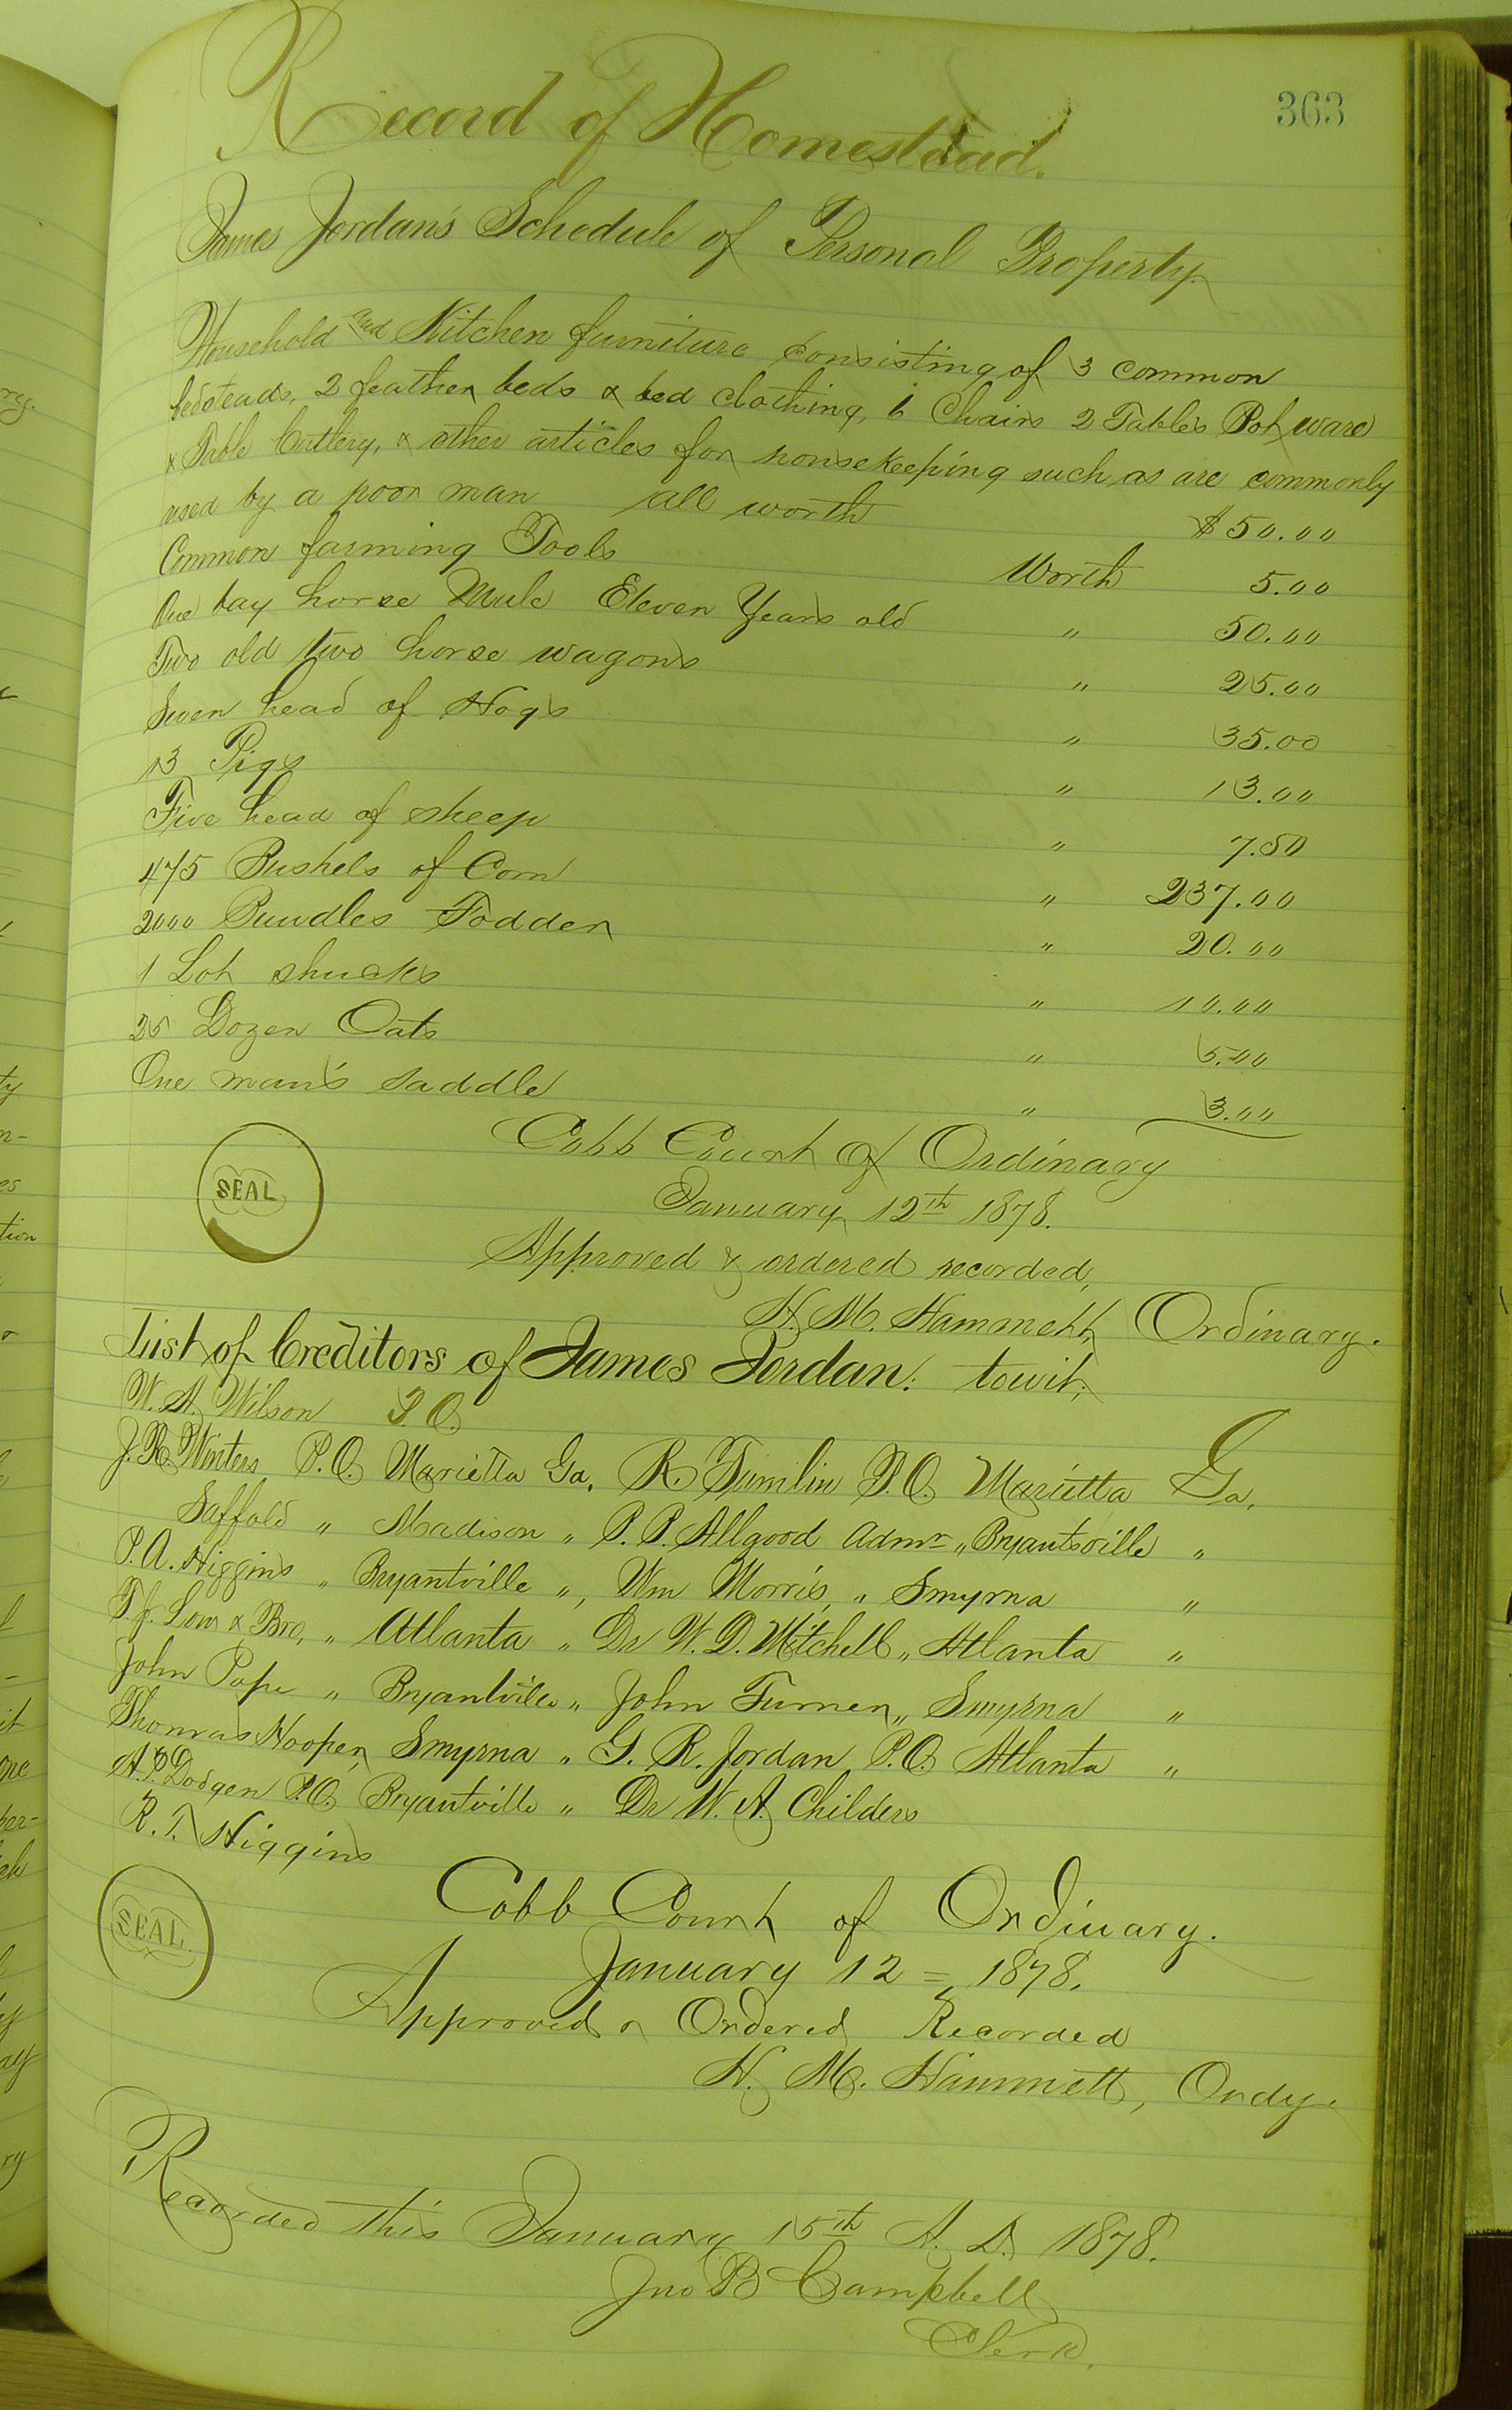 363
Record of Homestead.
James Jordan's Schedule of Personal Property.
Household and Kitchen furniture consisting of 3 common
bedsteads, 2 feather beds & bed clothing, 6 Chairs 2 Tables Pot ware
& Table Cutlery, & other articles for housekeeping such as are commonly
used by a poor man all worth $50.00
Common farming Tools Worth 5.00
One bay horse Mule Eleven Years old " 50.00
Two old two horse wagons " 25.00
Seven head of Hogs " 35.00
13 Pigs " 13.00
Five head of sheep " 7.50
475 Bushels of Corn " 237.00
2000 Bundles Fodder " 20.00
1 Lot shucks " 10.00
25 Dozen Oats " 5.00
One man's saddle " 3.00
Cobb Court of Ordinary
SEAL
January 12th 1878.
Approved & ordered recorded,
H. M. Hammett Ordinary.
List of Creditors of James Jordan: towit;
W. A. Wilson P.O.
J. R. Winters P.O. Marietta Ga. R. Tumlin P.O. Marietta Ga.
Saffold " Madison " P. P. Allgood Admr " Bryantsville "
P. A. Higgins " Bryantville ", Wm Morris, " Smyrna "
Low & Bro, " Atlanta " Dr W. D. Mitchell " Atlanta "
John Pope " Bryantville " John Turner " Smyrna "
Thomas Hooper, Smyrna " G. R. Jordan P.O. Atlanta "
A. P. Dodgen P.O. Bryantville " Dr W. A. Childers
R. T. Higgins
Cobb Court of Ordinary.
SEAL
January 12 = 1878.
Approved & Ordered Recorded
H. M. Hammett, Ordy.
Recorded this January 15th A. D. 1878.
Jno B Campbell
Clerk.